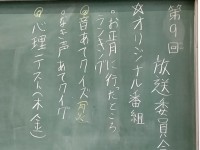 第9回 放送委員会
☆オリジナル番組
。お正月に行ったところ
ランキング
@音あてクイズ
。なき声あてクイズ
@心理テスト(木、金)